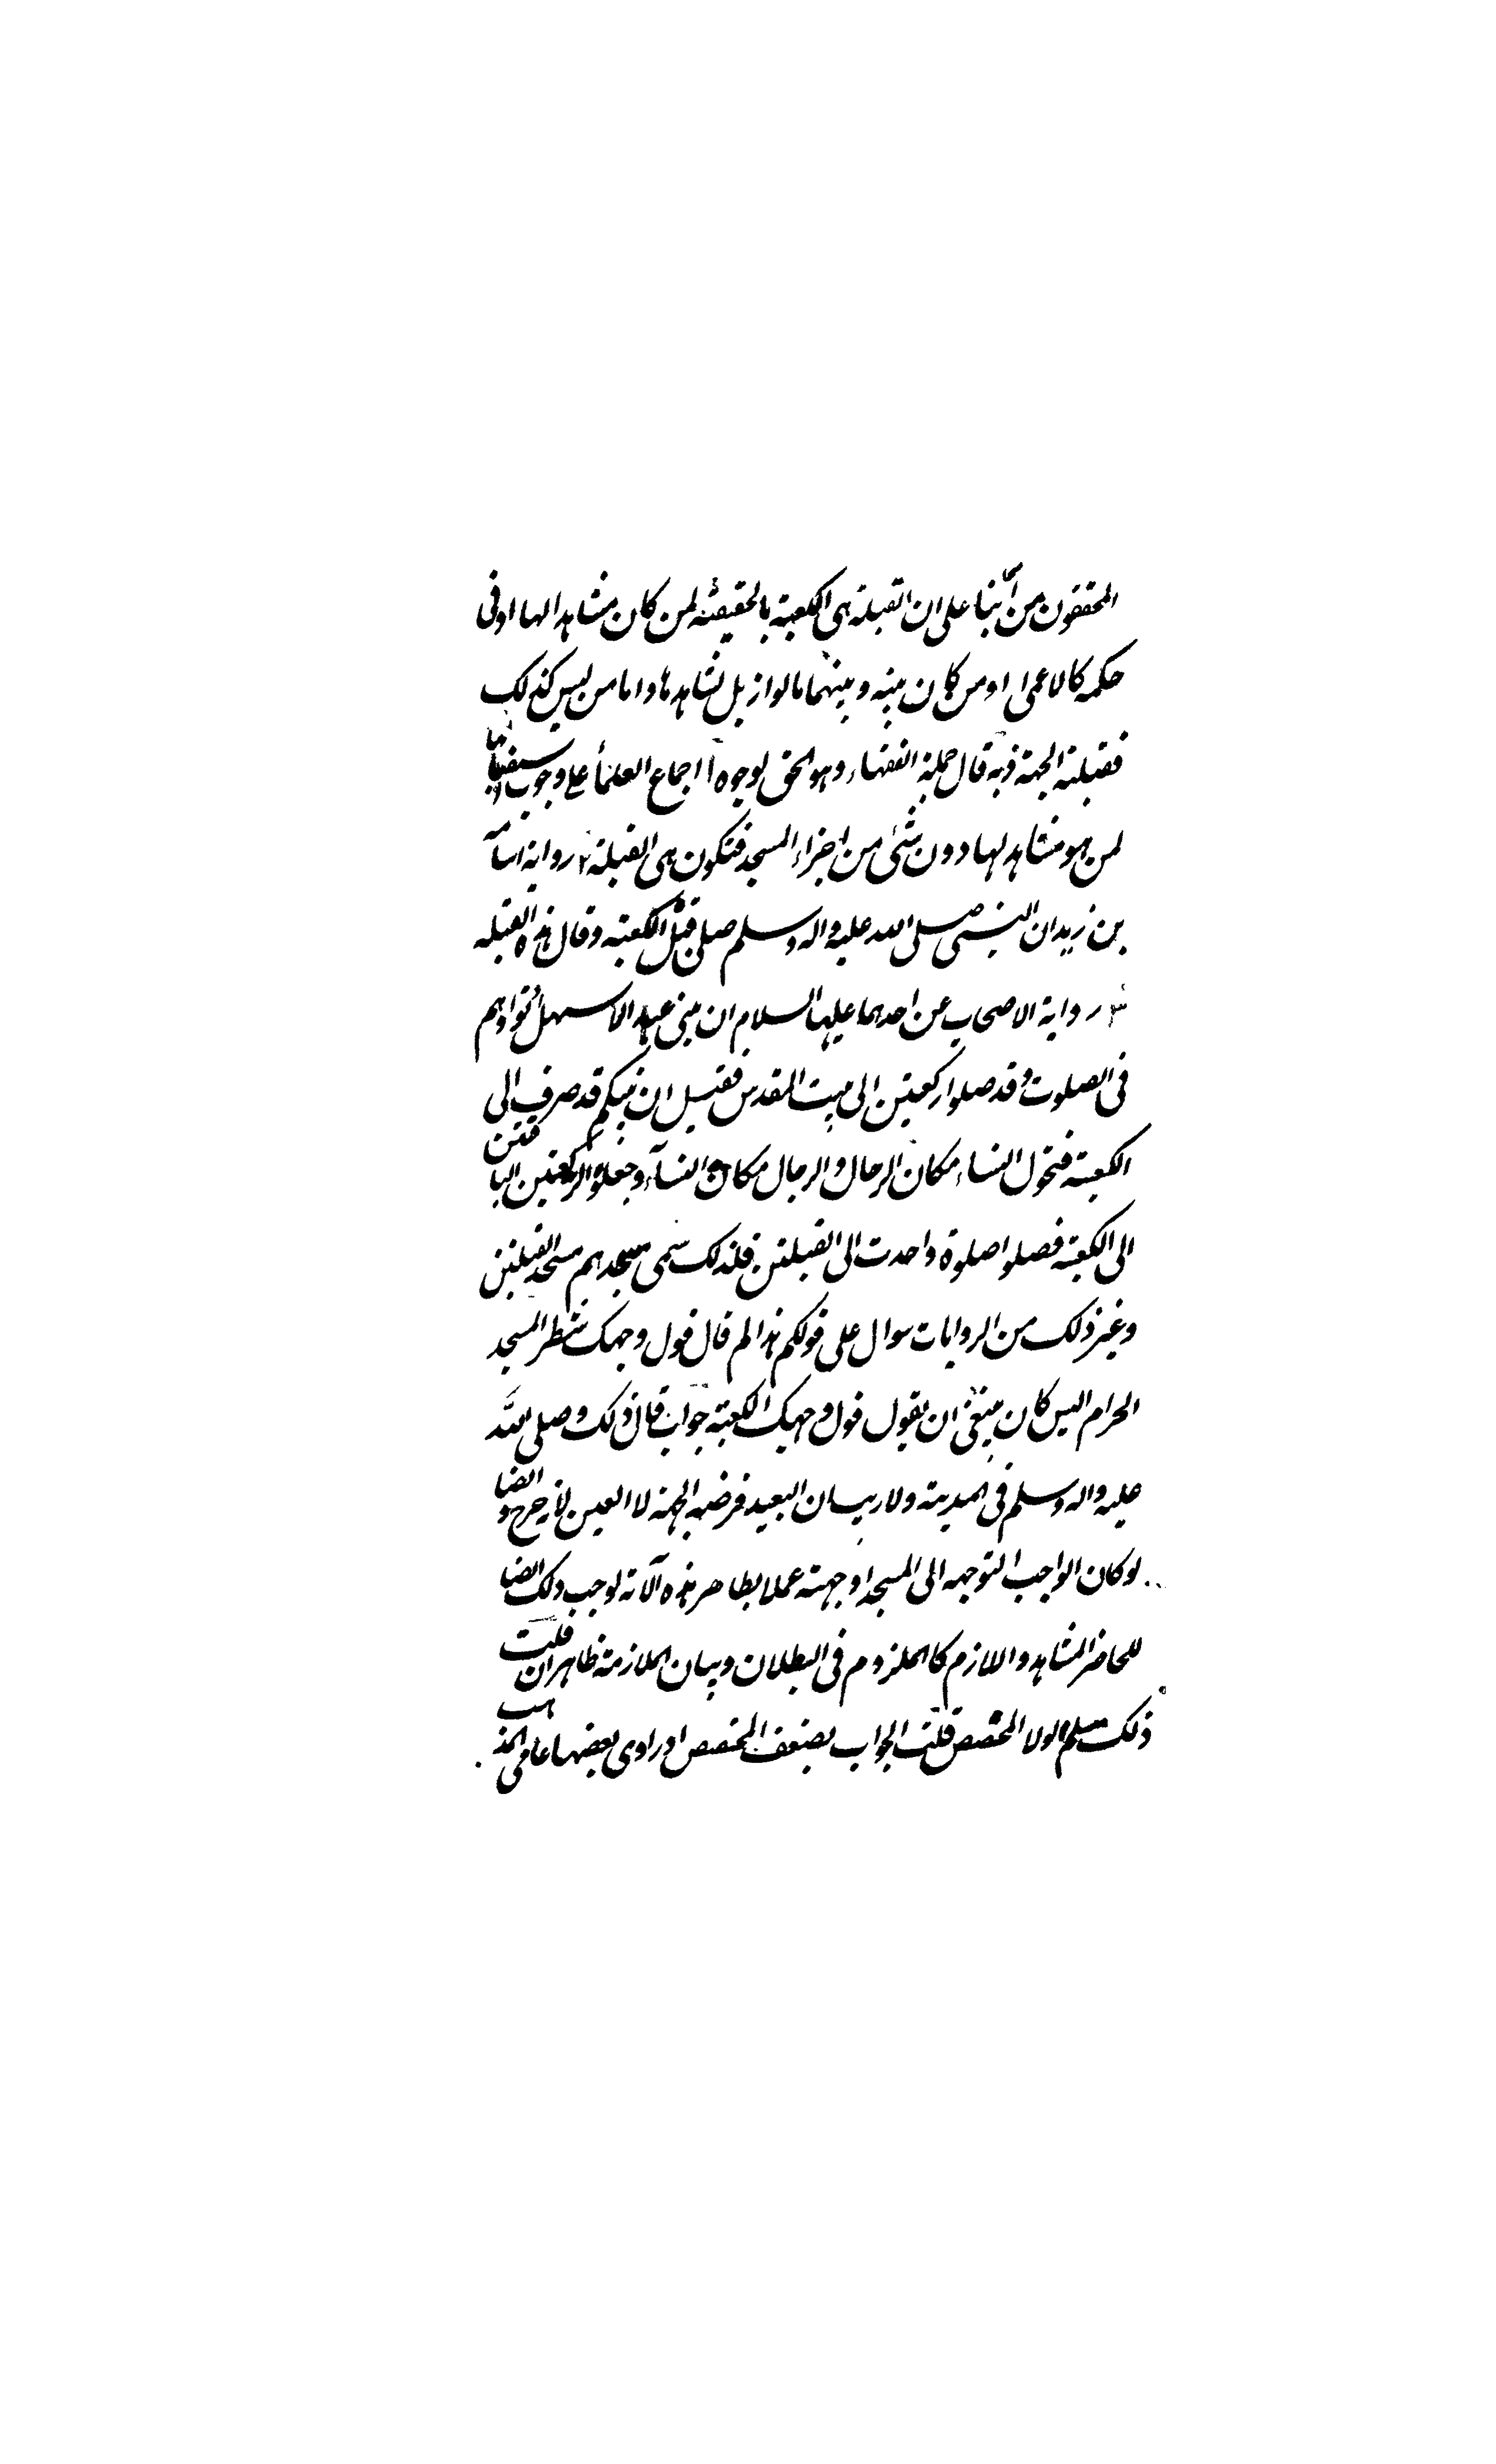 المحققون من أئمتنا على ان القبلة هى الكعبة بالحقيقة لمن كان مشاهدا لها او فى
حكمه كالاعمى او من كان بينه وبينهما ما لو ازيل لشاهدها واما من ليس كذلك
فقبلته الجهة وبه قال جملة الفقهاء وهو الحق لوجوه ا اجماع العلمأ على وجوب استقبالها
لمن هو مشاهد لها دون شئ من اجزاء المسجد فتكون هى القبلة ٢ رواية اسامة
بن زيد ان النبى صلى الله عليه واله وسلم صلى قبل الكعبة وقال هذه القبله
٣ رواية الاصحاب عن احدهما عليهما السلام ان بنى عبد الاسهل اتوا وهم
فى الصلوت وقد صلوا ركعتين الى بيت المقدس فقيل ان نبيكم قد صرف الى
الكعبة فتحول النساء مكان الرجال والرجال مكان النسآء وجعلوا الركعتين الباقيتين
الى الكعبة فصلوا صلوة واحدت الى القبلتين فلذلك سمى مسجدهم مسجد القبلتين
وغير ذلك من الروايات سوال على قولكم هذا لم قال فول وجهك شطر المسجد
الحرام اليس كان ينبغى ان يقول فول وجهك الكعبة جواب قال ذلك وصلى الله
عليه واله وسلم فى المدينة ولا ريب ان البعيد فرضه الجهة لا العين لأنه حرج و ايضا
لو كان الواجب التوجه الى المسجد او جهته عملا بظاهر هذه الآية لوجب ذلك ايضا
للحاضر المشاهد واللازم كالملزوم فى البطلان وبيان الملازمة ظاهر ان قلت
ذلك مسلم لولا المخصص قلت الجواب بضعف المخصص اذ راوى بعضها عامى المذهب